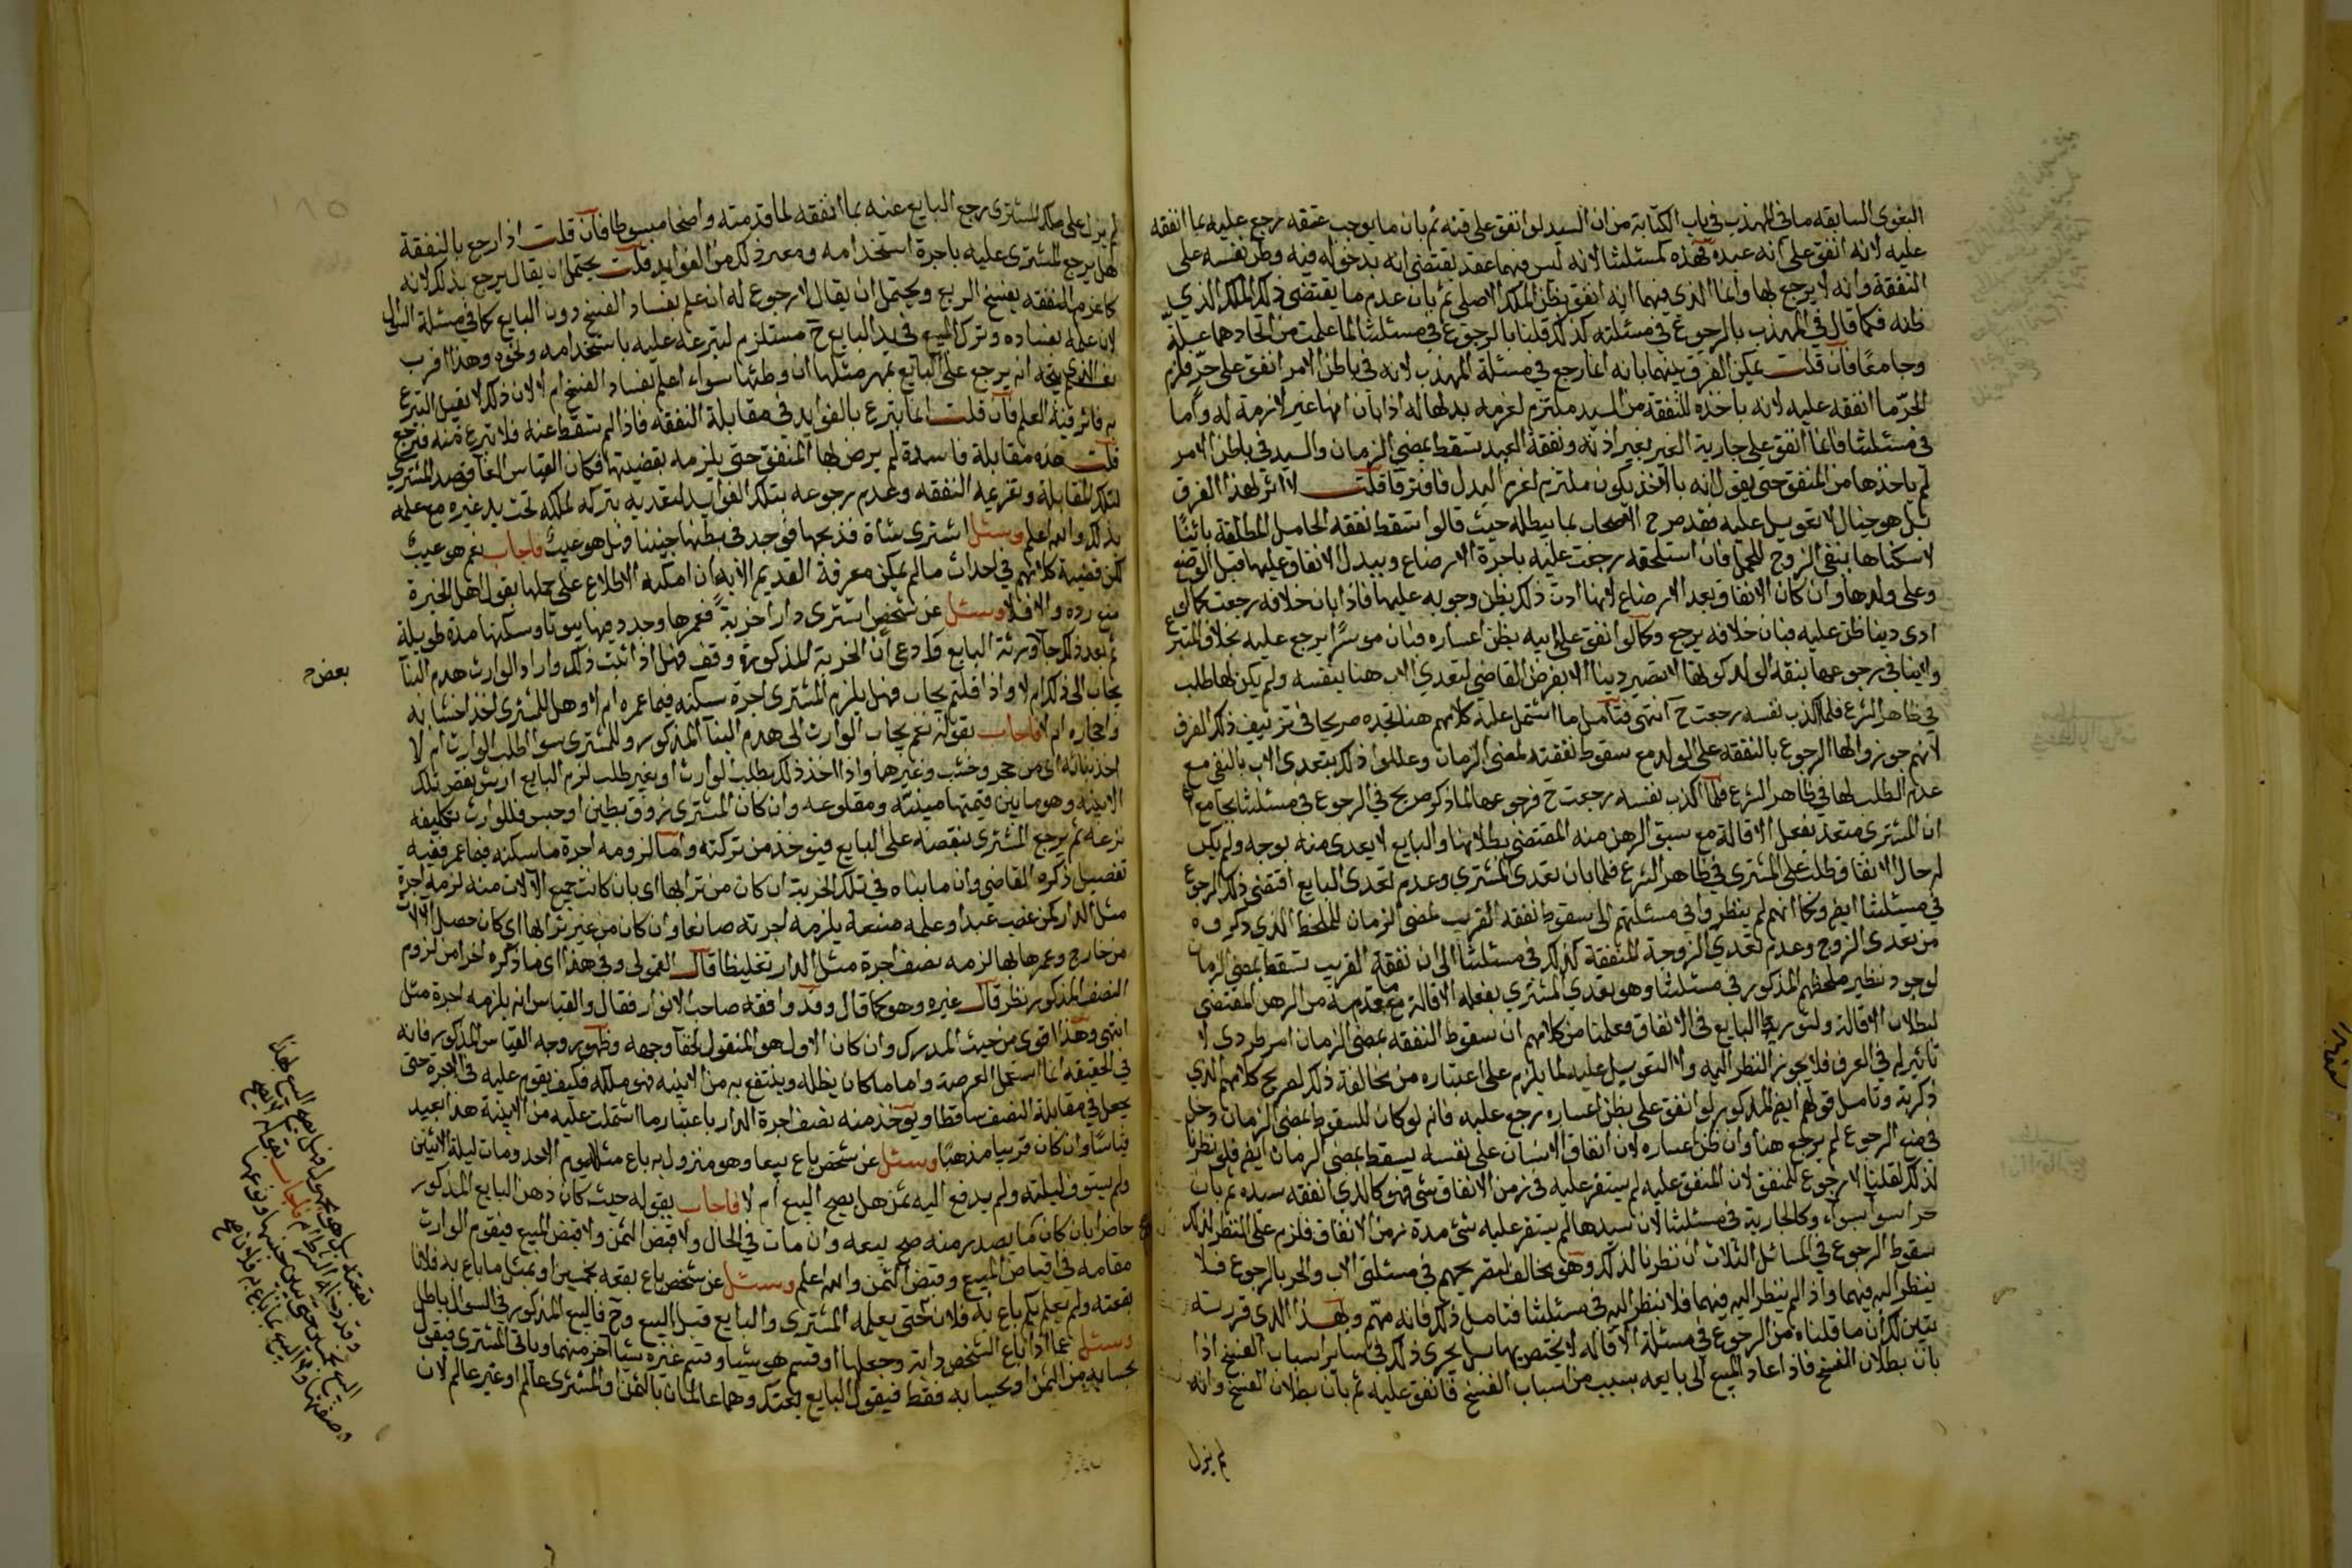 البغوى السابقه ما فى المهذب فى باب الكتابة من ان السيد لو انفق على قنه ثم بان ما يوجب عتقه رجع عليه بما انفقه
عليه لانه انفق على انه عبده فهذه كمسئلتنا لانه ليس فيهما عقد يقتضى انه يدخوله فيه وطن نفسه على
النفقة وانه لا يرجع بها وانما الذى فيهما انه انفق بظن الملك الاصلى ثم بان عدم ما يقتضى ذلك الملك الذي
ظنه فكما قال فى المهذب بالرجوع فى مسئلته كذلك قلنا بالرجوع فى مسئلتنا لما علمت من اتحادهما علة
وجامعا فان قلت يمكن الفرق بينهما بانه انما رجع فى مسئلة المهذب لانه فى باطن الامر انفق على حر فلزم
الحر ما انفقه عليه لانه باخذه للنفقة من السيد ملتزم لغرمه بدلها له اذا بان انها غير لازمة له واما
فى مسئلتنا فانما انفق على جارية الغير بغير اذنه ونفقة العبد تسقط بمضى الزمان والسيد فى باطن الامر
لم ياخذها من المنفق حتى يقول انه بالاخذ يكون ملتزم لغرم البدل فافترقا قلت لا اثر لهذا الفرق
بل هو خيال لا تعويل عليه فقد صرح الاصحاب بما يبطله حيث قالوا تسقط نفقه الحامل المطلقة بائنا
لا سكناها بنفى الزوج للحمل فان استلحقه رجعت عليه باجرة الارضاع وببدل الانفاق عليها قبل الوضع
وعلى ولدها وان كان الانفاق بعد الارضاع لانها ادت ذلك بظن وجوبه عليها فاذا بان خلافه رجعت كما لو
ادى دينا ظن عليه فبان خلافه يرجع وكما لو انفق على ابيه بظن اعساره فبان موسرا يرجع عليه بخلاف المتبرع
ولاينافى رجوعها بنفقه الولد كونها لا تصير دينا الا بفرض القاضى لتعدي الاب هنا بنفسه ولم يكن لها طلب
في ظاهر الشرع فلما اكذب نفسه رجعت ح انتهى فتامل ما اشتمل عليه كلامهم هنا تجده صريحا فى تزييف ذلك الفرق
لانهم جوزوا لها الرجوع بالنفقه على الولد مع سقوط نفقته بمضى الزمان وعللوا ذلك بتعدى الاب بالنفى مع
عدم الطلب لها فى ظاهر الشرع فلما اكذب نفسه رجعت ح فرجوعها لما ذكر صريح فى الرجوع فى مسئلتنا بجامع
ان المشترى متعد بفعل الاقالة مع سبق الرهن منه المقتضى بطلانها والبايع لا يعدى منه بوجه ولم يكن
له حال الانفاق طلب على المشترى فى ظاهر الشرع فلما بان تعدى المشتري وعدم تعدى البايع اقتضى ذلك الرجوع
في مسئلتنا ايضا وكما انهم لم ينظروا فى مسئلتهم الى سقوط نفقه القريب بمضى الزمان للملحظ الذي ذكروه
من تعدى الزوج وعدم تعدي الزوجة المنفقة كذلك فى مسئلتنا الى ان نفقة القريب تسقط بمضى الزمان
لوجود نظير ملحظهم المذكور فى مسئلتنا وهو تعدي المشتري بفعله الاقالة مع تقدمه من الرهن المقتضى
لبطلان الاقالة ولتوريط البايع فى الانفاق وعلمنا من كلامهم ان سقوط النفقه بمضى الزمان امر طردى لا
تاثير له فى العرف فلا يجوز النظر اليه ولا التعويل عليه لما يلزم على اعتباره من مخالفة ذلك لصريح كلامهم الذي
ذكرته وتامل قولهم ايضا المذكور لو انفق على بظن اعساره رجع عليه فانه لو كان للسقوط بمضى الزمان دخل
فى منع الرجوع لم يرجع هنا وان ظن اعساره لان انفاق الانسان على نفسه يسقط بمضى الزمان ايضا فلو نظرنا
لذلك لقلنا لا رجوع للمنفق لان المنفق عليه لم يستقر عليه فى زمن الانفاق شى فهو كالذي انفقه سيده ثم بان
حرا سوا بسواء وكالجارية فى مسئلتنا لان سيدها لم يستقر عليه شئ مدة زمن الانفاق فلزم على النظر لذلك
سقوط الرجوع في المسائل الثلاث ان نظرنا لذلك وهو مخالف لتصريحهم فى مسئلتى الاب والحر بالرجوع فلا
ينظر اليه فيهما واذا لم ينظر اليه فيهما فلا ينظر اليه فى مسئلتنا فتامل ذلك فانه مهم وبهذا الذى قررته
يتبين لك ان ما قلناه من الرجوع فى مسئلة الاقاله لا يختص بها بل يجرى ذلك فى سائر اسباب الفسخ اذا
بان بطلان الفسخ فاذا عاد المبيع الى بايعه بسبب من اسباب الفسخ فانفق عليه ثم بان بطلان الفسخ وانه
لم يزل
لم يزل على ملك المشترى رجع البايع عنه بما انفقه لما قدمته واضحا مبسوطا فان قلت اذا رجع بالنفقة
هل يرجع المشترى عليه باجرة استخدامه وبغير ذلك من الفوايد قلت يحتمل ان يقال يرجع بذلك لانه
كما غرم النفقه بفسخ البيع ويحتمل ان يقال لا رجوع له ان علم بفساد الفسخ دون البايع كما فى مسئلة السوال
لان علمه بفساده وترك المبيع فى يد البايع ح مستلزم لتبرعه عليه باستخدامه ونحوه وهذا اقرب
نعم الذي يتجه انه يرجع على البايع بمهر مثلها ان وطئها سواء اعلم بفساد الفسخ ام لا لان ذلك لا يقبل التبرع
به فاثر فيه العلم فان قلت انما تبرع بالفوايد فى مقابلة النفقه فاذا لم تسقط عنه فلا تبرع منه فيرجع
قلت هذه مقابلة فاسدة لم يرض بها المنفق حتى يلزمه بقضيتها فكان القياس الغا قصد المشتري
لتلك المقابلة وتغريمه النفقه وعدم رجوعه بتلك الفوايد لتعديه بتركه لملكه تحت يد غيره مع علمه
بذلك والله اعلم وسئل اشترى شاة فذبحها فوجد فى بطنها جنينا فهل هو عيب فاجاب نعم هو عيب
لكن قضية كلامهم فى احداث ما لم يمكن معرفة القديم الا به ان امكنه الاطلاع على حملها بقول اهل الخبرة
منع رده والا فلا وسئل عن شخص اشترى دارا خربة فعمرها وجدد فيها بيوتا وسكنها مدة طويلة
ثم بعد ذلك جا ورثة البايع وادعى ان الخربة المذكورة وقف فهل اذا ثبت ذلك واراد الوارث هدم البنا
يجاب الى ذلك ام لا واذا قلتم يجاب فهل يلزم المشترى اجرة سكنه فيما عمره ام لا وهل للمشترى اخذ اخشابه
واحجاره ام لا فاجاب بقوله نعم يجاب الوارث الى هدم البنا المذكور وللمشترى سوا طلب الوارث ام لا
اخذ بنائه اى من حجر وخشب وغيرهما واذا اخذ ذلك بطلب الوارث او بغير طلب لزم البايع ارش نقص تلك
الابنيه وهو ما بين قيمتها مبنيه ومقلوعه وان كان المشترى زوق بطين او جبس فللوارث تكليفه
نزعه ثم يرجع المشترى بنقصه على البايع فيوخذ من تركته واما لزومه اجرة ما سكنه فيما عمر ففيه
تفصيل ذكره القاضى وان ما بناه فى تلك الخربة ان كان من ترابها اى بان كانت جميع الالات منه لزمه اجرة
مثل الدار كمن غصب عبدا وعلمه صنعة يلزمه اجرته صانعا وان كان من غير ترابها اى كان حصل الالات
من خارج وعمرها بها لزمه نصف اجرة مثل الدار تغليظا قال القمولى وفى هذا اى ما ذكره اخرا من لزوم
النصف المذكور نظر قال غيره وهو كما قال وقد وافقه صاحب الانوار فقال والقياس انه يلزمه اجرة مثل
انتهى وهذا اقوى من حيث المدرك وان كان الاول هو المنقول لخفا وجهه وظهور وجه القياس المذكور فانه
فى الحقيقه انما استعمل العرصة واما ما كان يظله وينتفع به من الابنيه فهى ملكه فكيف يقوم عليه فى الاجرة حتى
يجعل فى مقابلة النصف ساقطا ويوخذ منه نصف اجرة الدار باعتبار ما اشتملت عليه من الابنية هذا بعيد
قياسا وان كان قريبا مذهبا وسئل عن شخص باع بيعا وهو منزول به باع مثلا يوم الاحد ومات ليلة الاثنين
ولم يستوف ليلته ولم يدفع اليه ثمن هل يصح البيع ام لا فاجاب بقوله حيث كان ذهن البايع المذكور
حاضرا بان كان ما يصدر منه صح بيعه وان مات فى الحال ولا قبض الثمن ولا قبض المبيع فيقوم الوارث
مقامه فى اقباض المبيع وقبض الثمن والله اعلم وسئل عن شخص باع بقعه بخمسين او بمثل ما باع به فلانا
بقعته ولم يعلم بكم باع به فلان حتى يعلمه المشترى والبايع قبل البيع وح فالبيع المذكور فى السوال باطل
وسئل عما اذا باع الشخص دابة وجعلها او قسم هو شيا وقسم غيره شيا اخر منهما وباقى المشترى فيقول
بحسابه من الثمن او بحسابه فقط فيقول البايع بعتك وهما عالمان بالثمن او المشترى عالم او غير عالم لان
بعض